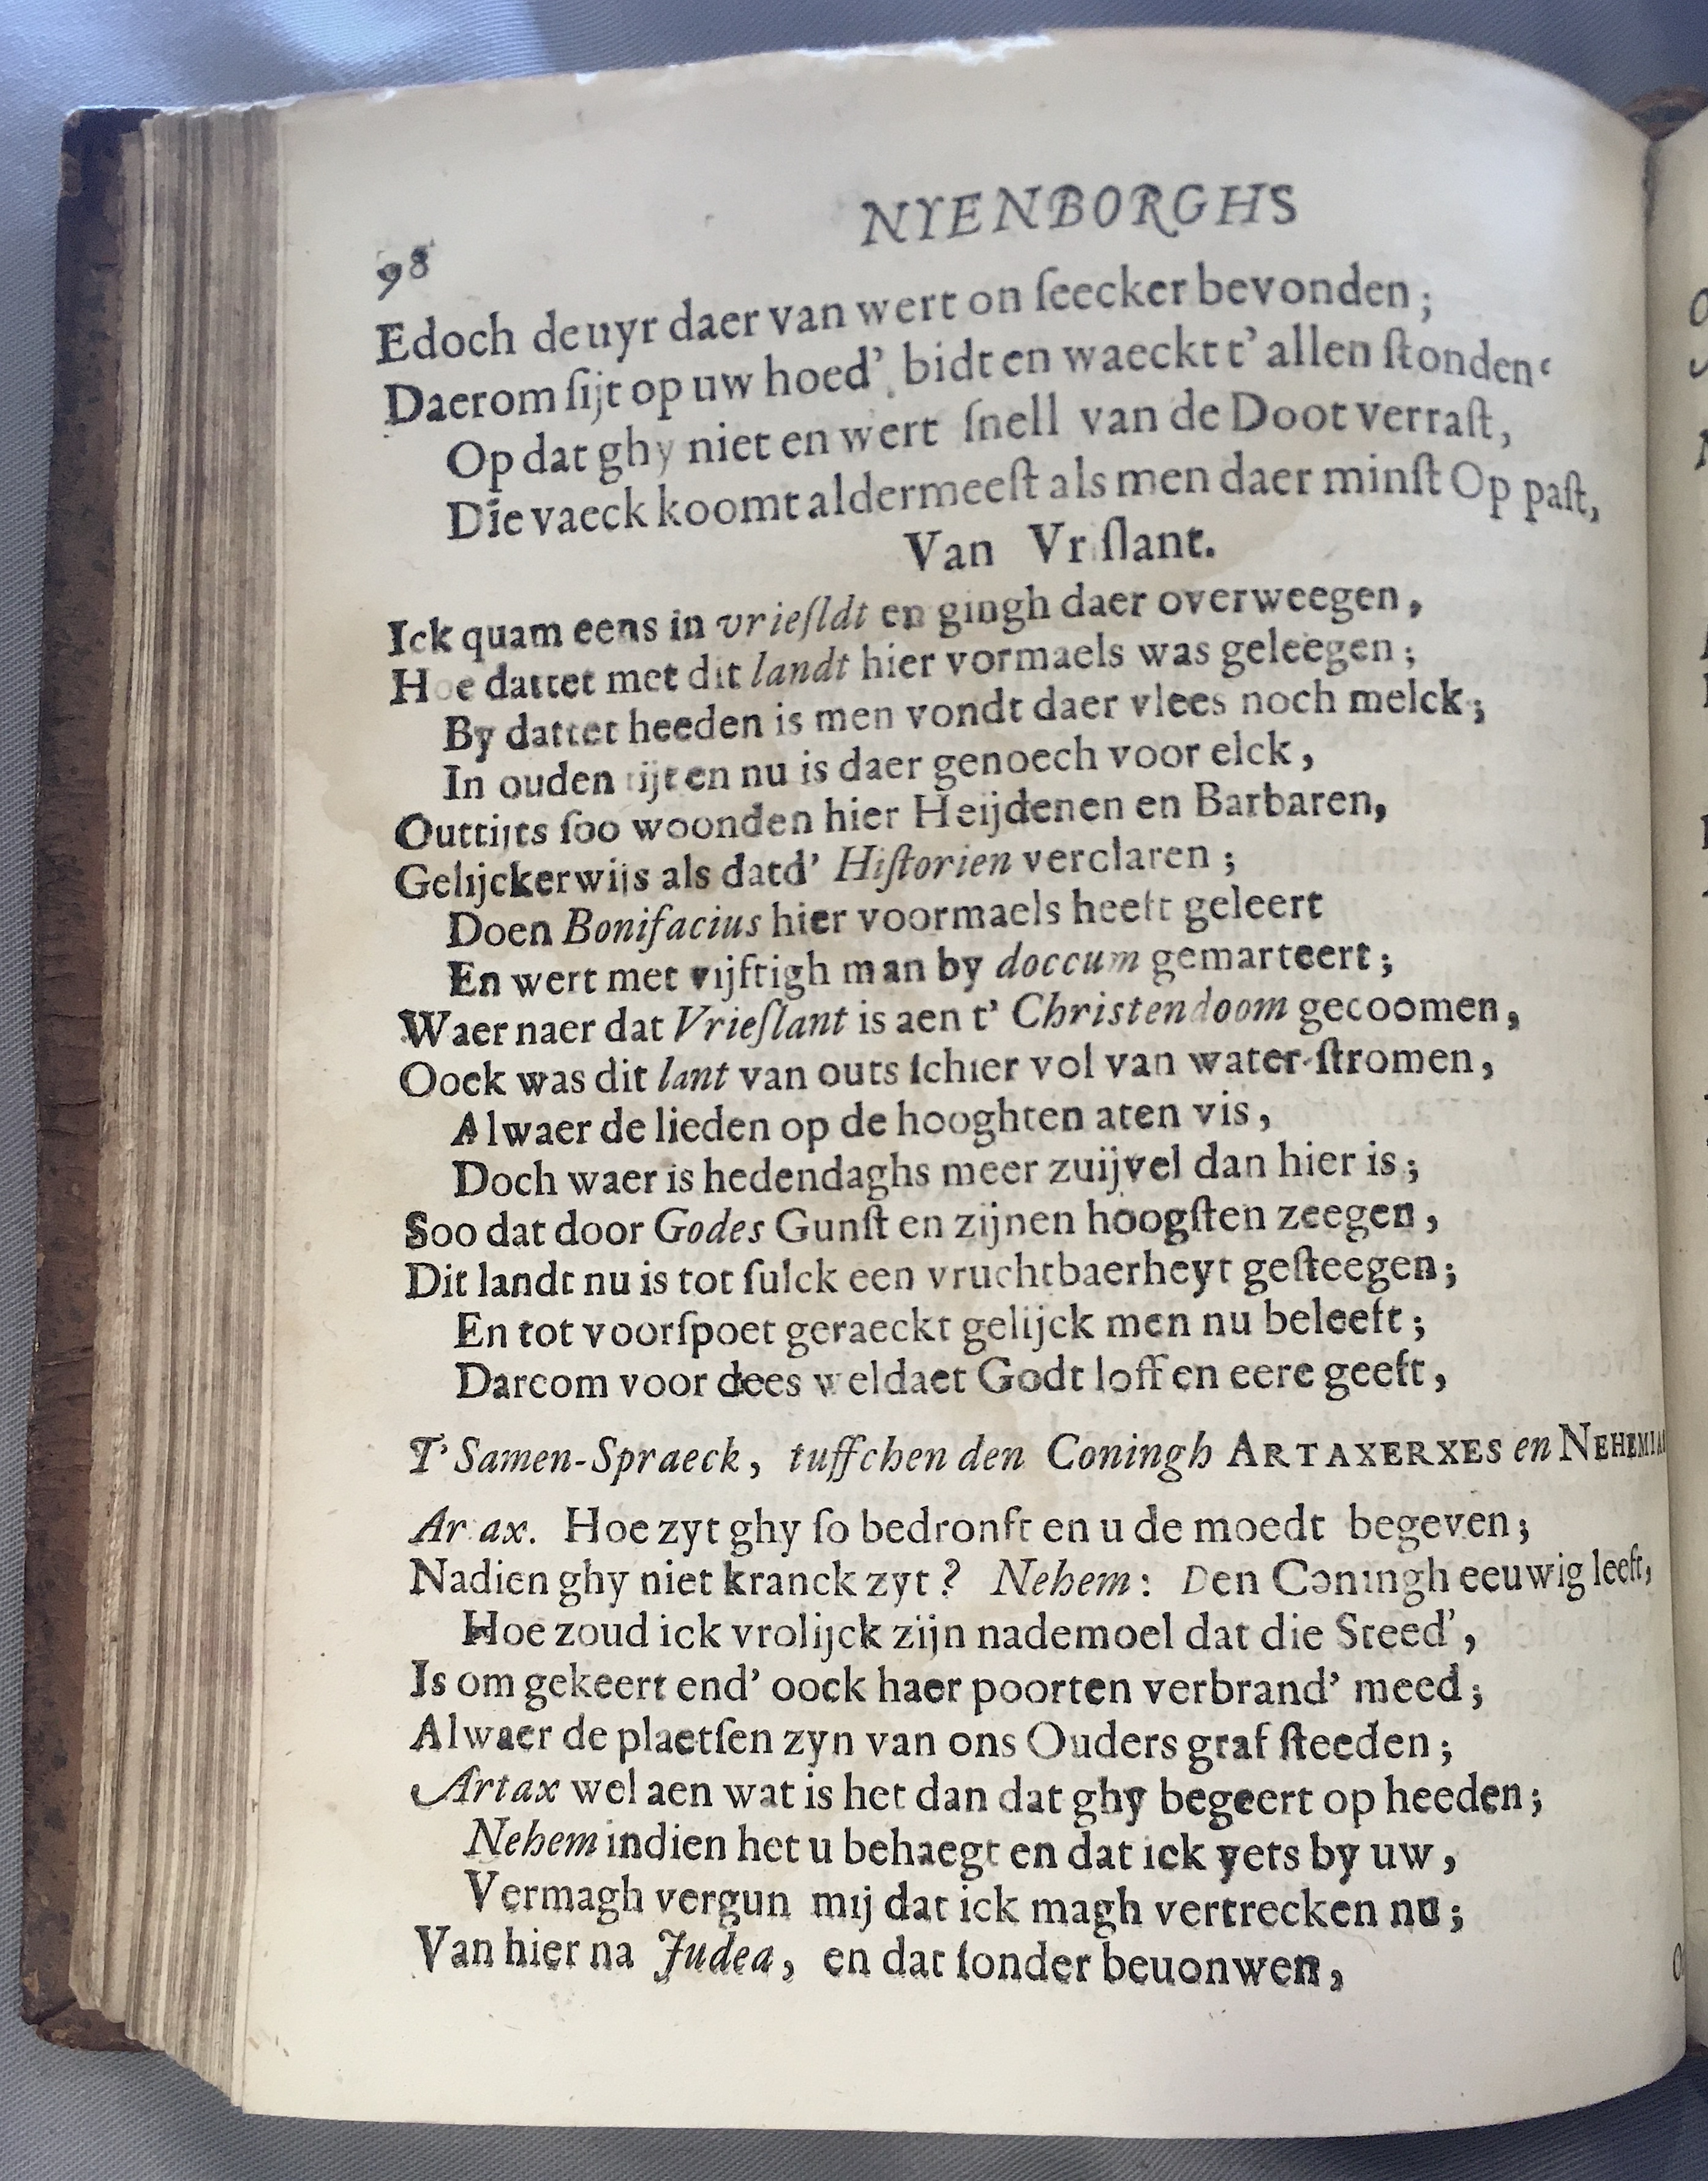 98 NYENBORGHS
Edoch de uyr daer van wert on ſeecker bevonden;
Daerom ſijt op uw hoed', bidt en waeckt t' allen ſtonden
Op dat ghy niet en wert ſnell van de Doot verraſt,
Die vaeck koomt aldermeeſt als men daer minſt Op paſt,
Van Vr ſlant.
Ick quam eens in vrieſldt en gingh daer overweegen,
Hoe dattet met dit landt hier vormaels was geleegen;
By dattet heeden is men vondt daer vlees noch melck;
In ouden tijt en nu is daer genoech voor elck,
Outtijts ſoo woonden hier Heijdenen en Barbaren,
Gelijckerwijs als datd' Hiſtorien verclaren;
Doen Bonifacius hier voormaels heeft geleert
En wert met vijftigh man by doccum gemarteert;
Waer naer dat Vrieſlant is aen t' Christendoom gecoomen,
Oock was dit lant van outs ſchier vol van water-ſtromen,
Alwaer de lieden op de hooghten aten vis,
Doch waer is hedendaghs meer zuijvel dan hier is;
Soo dat door Godes Gunſt en zijnen hoogſten zeegen,
Dit landt nu is tot ſulck een vruchtbaerheyt geſteegen;
En tot voorſpoet geraeckt gelijck men nu beleeft;
Darcom voor dees weldaet Godt loff en eere geeft,
T' Samen-Spraeck, tuſſchen den Coningh ARTAXERXES en NEHEMIA
Ar ax. Hoe zyt ghy ſo bedronft en u de moedt begeven;
Nadien ghy niet kranck zyt? Nehem: Den Coningh eeuwig leeft,
Hoe zoud ick vrolijck zijn nademoel dat die Steed',
Is om gekeert end' oock haer poorten verbrand' meed;
Alwaer de plaetſen zyn van ons Ouders graf ſteeden;
Artax wel aen wat is het dan dat ghy begeert op heeden;
Nehem indien het u behaegt en dat ick yets by uw,
Vermagh vergun mij dat ick magh vertrecken nu;
Van hier na Judea, en dat ſonder beuonwen,